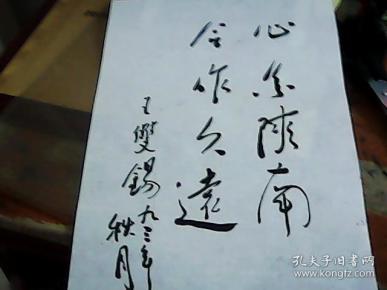 心系陕南
合作久远
王双锡九三年
秋月
孔夫子旧书网